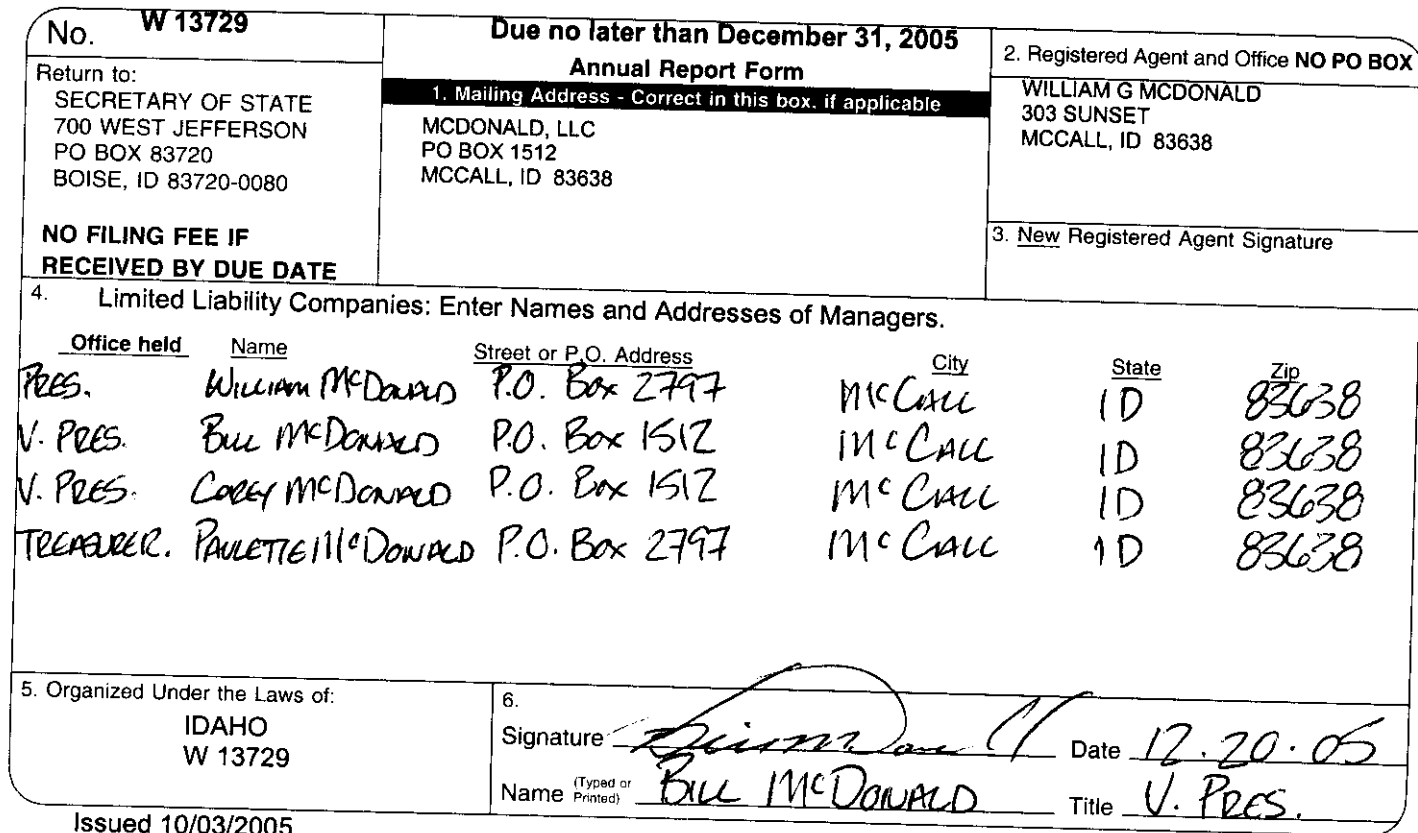 No. W 13729
Return to:
SECRETARY OF STATE
700 WEST JEFFERSON
PO BOX 83720
BOISE, ID 83720-0080
NO FILING FEE IF
RECEIVED BY DUE DATE
Due no later than December 31, 2005
Annual Report Form
1. Mailing Address - Correct in this box. if applicable
MCDONALD, LLC
PO BOX 1512
MCCALL, ID 83638
2. Registered Agent and Office NO PO BOX
WILLIAM G MCDONALD
303 SUNSET
MCCALL, ID 83638
3. New Registered Agent Signature
4. Limited Liability Companies: Enter Names and Addresses of Managers.
Office held Name Street or P.O. Address City State Zip
PRES. WILLIAM McDONALD P.O. Box 2797 McCALL ID 83638
V. PRES. BILL McDONALD P.O. Box 1512 McCALL ID 83638
V. PRES. COREY McDONALD P.O. Box 1512 McCALL ID 83638
TREASURER. PAULETTE McDONALD P.O. Box 2797 McCALL ID 83638
5. Organized Under the Laws of:
IDAHO
W 13729
6.
Signature Date 12.20.05
Name (Typed or Printed) BILL McDONALD Title V. PRES.
Issued 10/03/2005